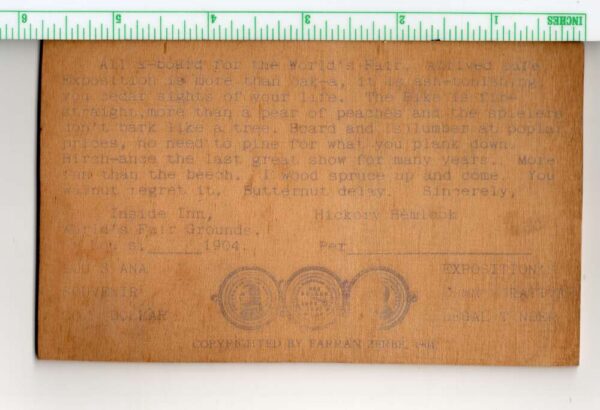 6 5 4 3 2 1 INCHES
All a-board for the World's Fair. Arrived safe.
Exposition is more than Oak-a, it is ash-tonishing
you cedar sights of your life. The Pike is fir-
straight,more than a pear of peaches and the spielers
don't bark like a tree. Board and (s)lumber at poplar
prices, no need to pine for what you plank down.
Birch-ance the last great show for many years.. More
fun than the beech. I wood spruce up and come. You
walnut regret it. Butternut delay. Sincerely,
Inside Inn, Hickory Hemlock
World's Fair Grounds.
St Louis,______1904. Per____________________
LOUISIANA EXPOSITION
SOUVENIR
DOLLAR LEGAL TENDER
COPYRIGHTED BY FARRAN ZERBE, 1904